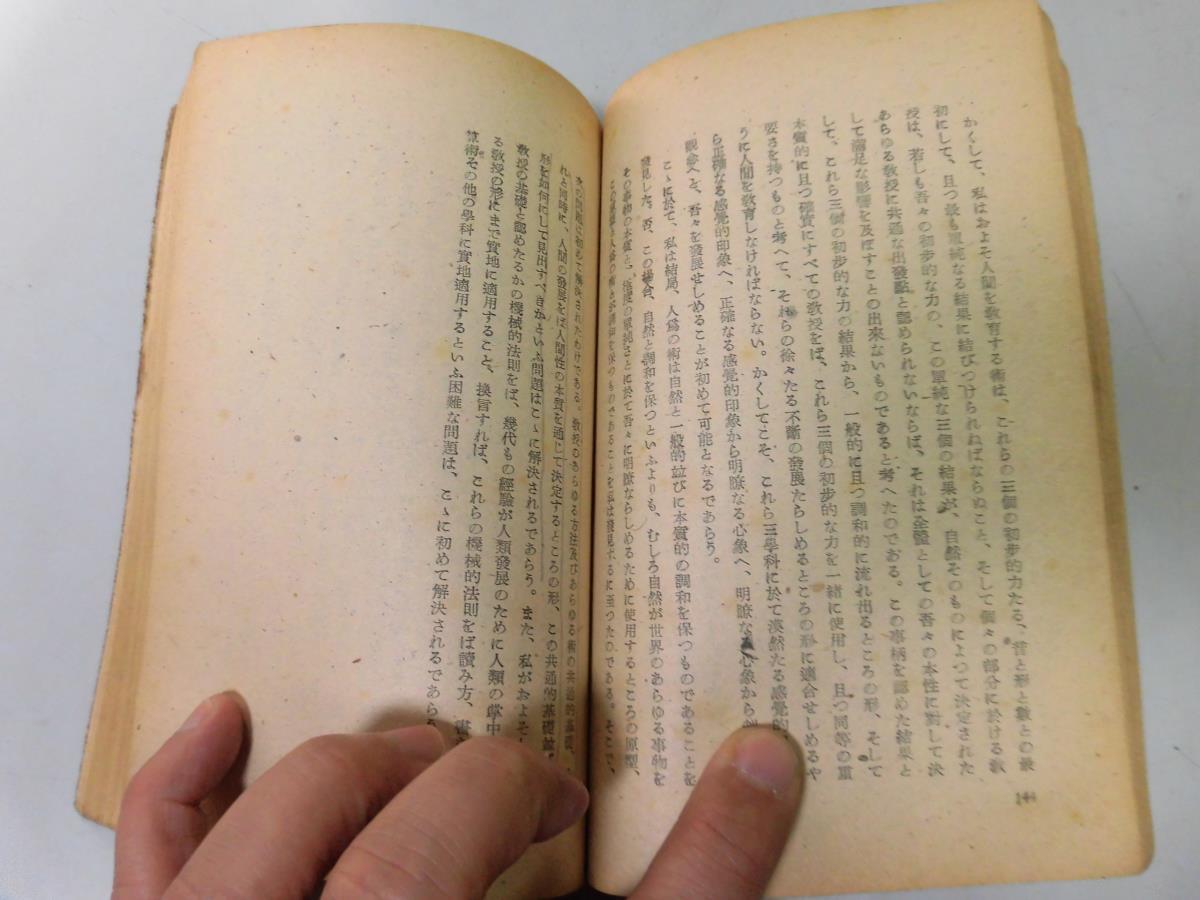 かくして、私はおよそ人間を教育する術は、これらの三個の初步的力たる、音と形と數との最
初にして、且つ最も單純なる結果に結びつけられねばならぬこと、そして個々の部分に於ける敎
授は、若しも吾々の初步的な力の、この單純な三個の結果が、自然そのものによつて決定された
あらゆる敎授に共通な出發點と認められないならば、それは全體としての吾々の本性に對して決
して滿足な影響を及ぼすことの出來ないものであると考へたのである。この事柄を認めた結果と
して、これら三個の初步的な力の結果から、一般的に且つ調和的に流れ出るところの形、そして
本質的に且つ確實にすべての敎授をば、これら三個の初步的な力を一緒に使用し、且つ同等の重
要さを持つものと考へて、それらの徐々たる不斷の發展たらしめるところの形に適合せしめるや
うに人間を敎育しなければならない。かくしてこそ、これら三學科に於て漠然たる感覺的
ら正確なる感覺的印象へ、正確なる感覺的印象から明瞭なる心象へ、明瞭なる心象から
觀念へと、吾々を發展せしめることが初めて可能となるであらう。
こゝに於て、私は結局、人爲の術は自然と一般的並びに本質的の調和を保つものであることを
發見した。否、この場合、自然と調和を保つといふよりも、むしろ自然が世界のあらゆる事物を
その事物の本質と、極度の單純さとに於て吾々に明瞭ならしめるために使用するところの原型、
調和を保つものであることを私は發見するに至つたのである。そこで、
次の問題は初めて解決されたわけである。敎授のあらゆる方法及びあらゆる術の共通的基礎、
れと同時に、人間の發展をば人間性の本質を通じて決定するところの形、この共通的基礎
形を如何にして見出すべきかといふ問題はこゝに解決されるであらう。また、私がおよそ
敎授の基礎と認めたるかの機械的法則をば、幾代もの經驗が人類發展のために人類の掌中
る敎授の形にまで實地に適用すること、換言すれば、これらの機械的法則をば讀み方、書
算術その他の學科に實地適用するといふ困難な問題は、こゝに初めて解決されるであらう
144